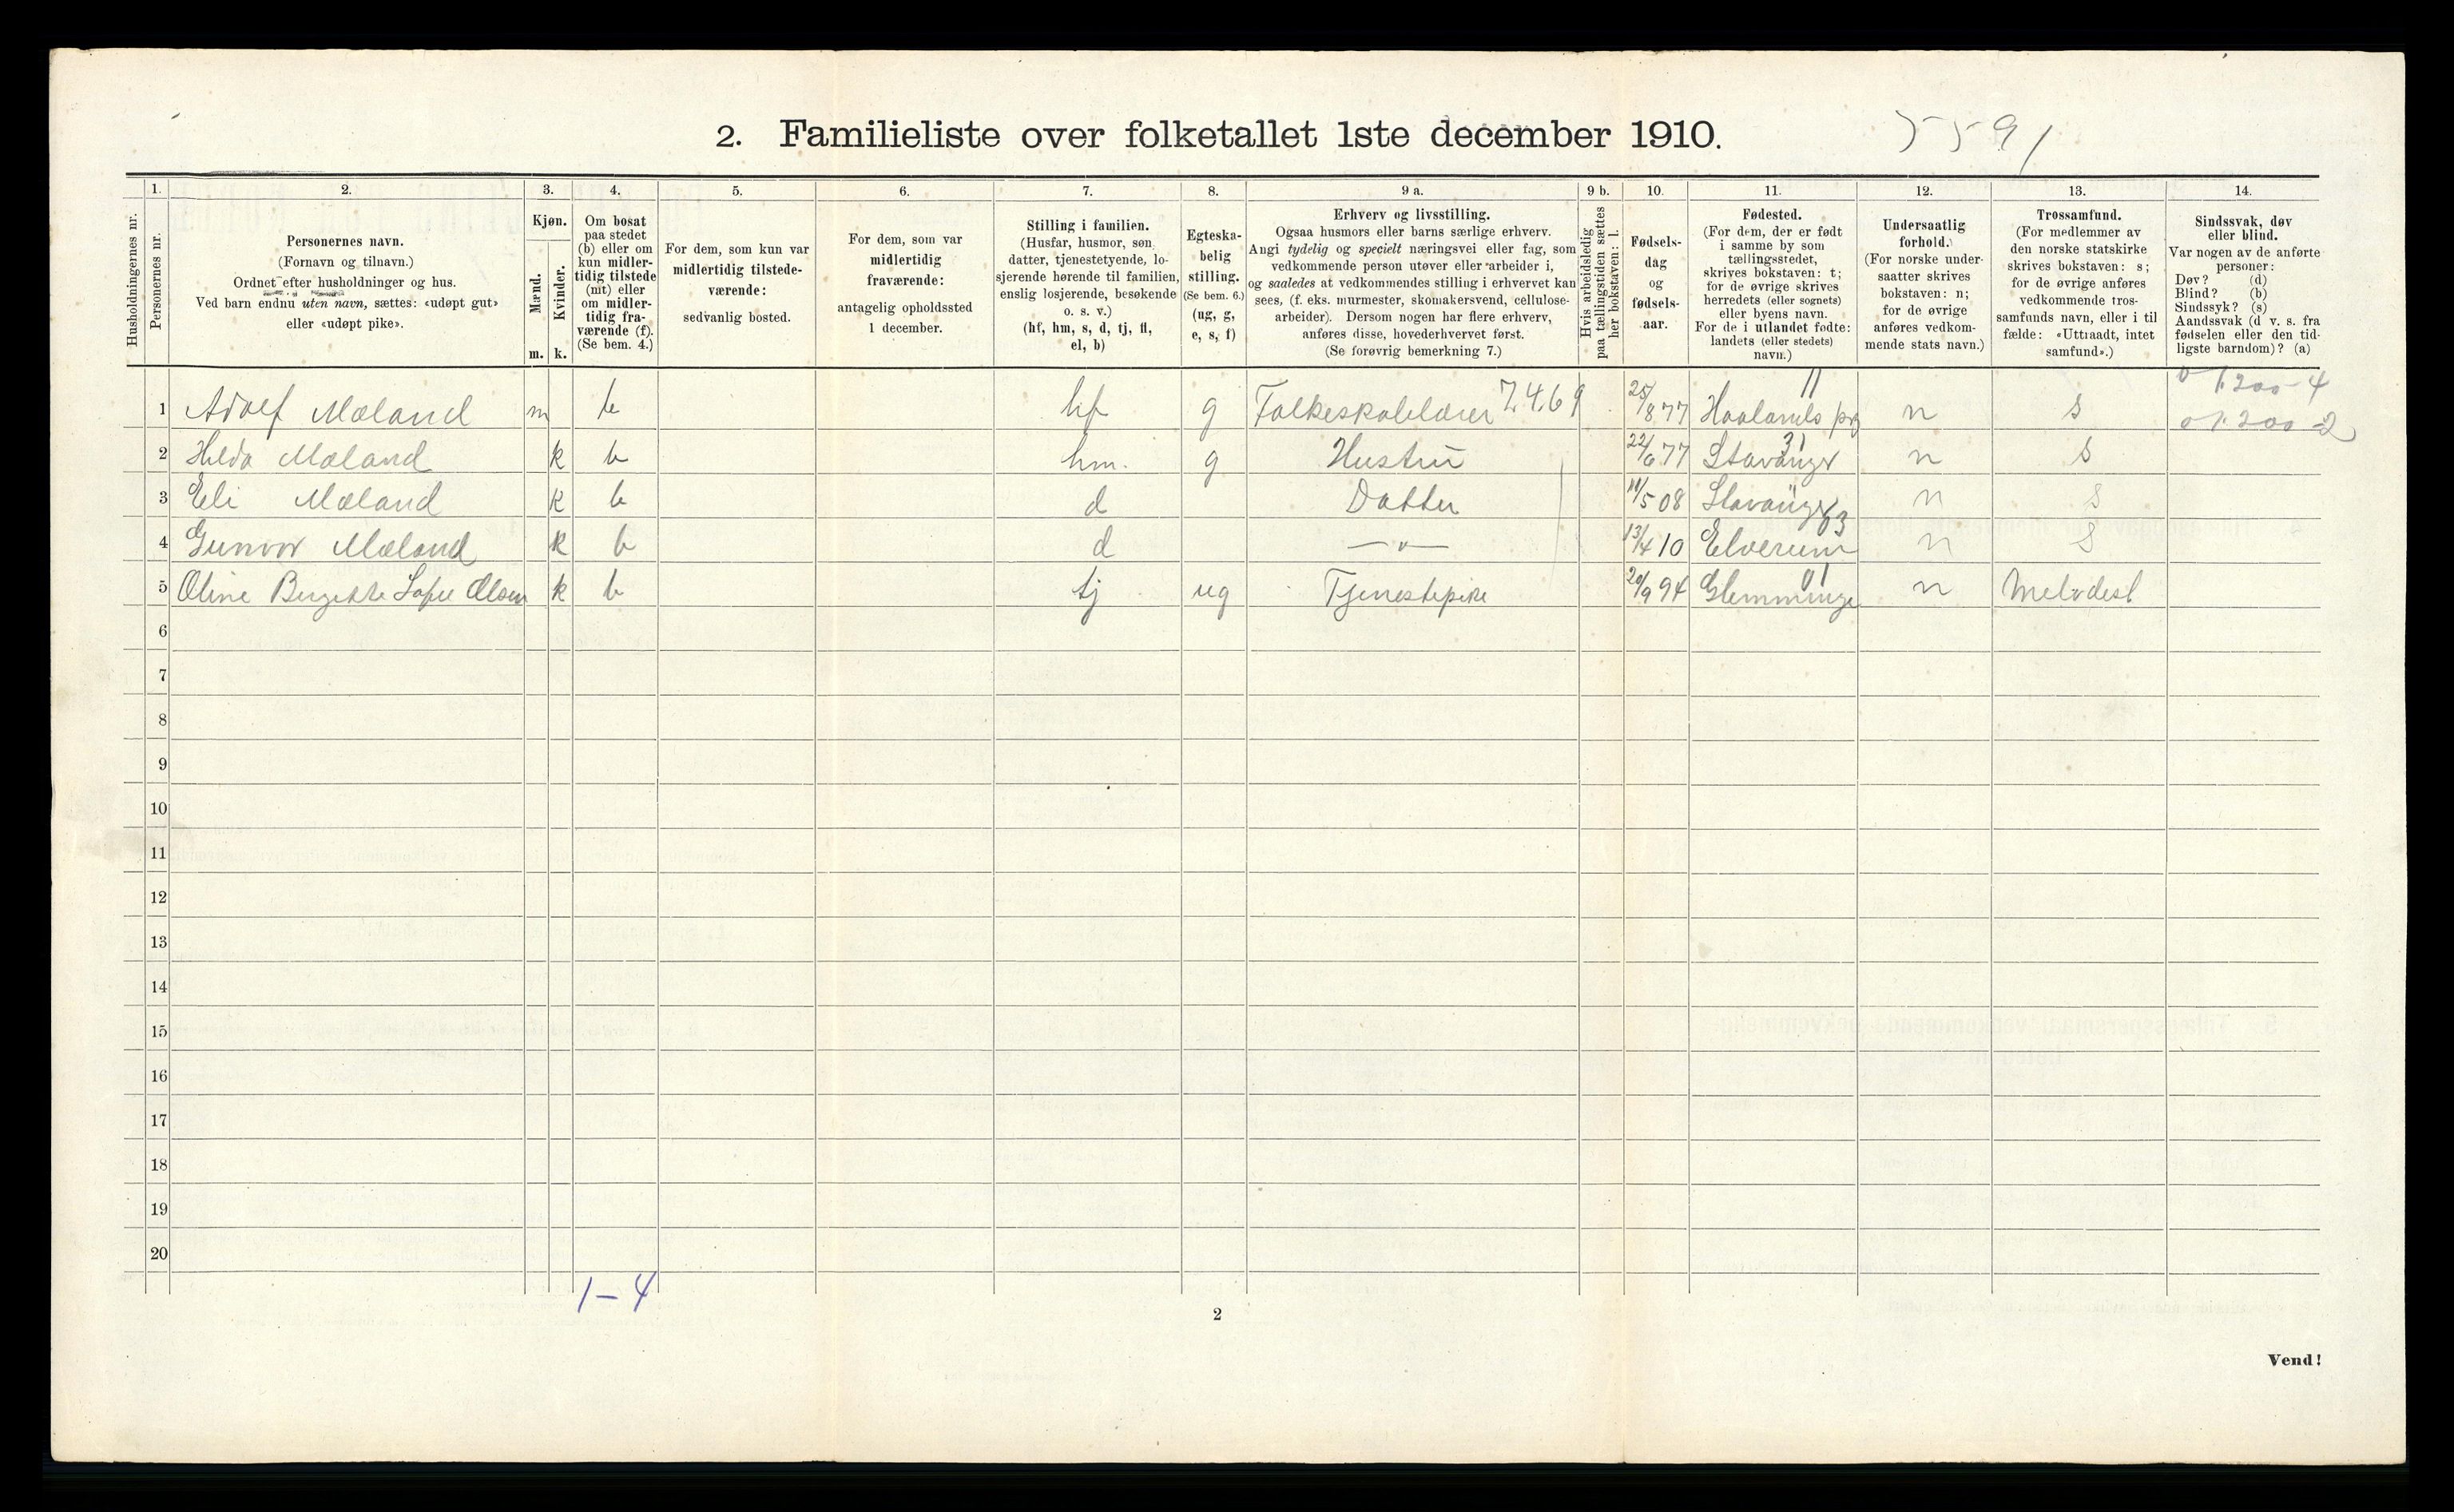 2. Familieliste over folketallet 1ste december 1910.
5591
1. 2. 3. 4. 5. 6. 7. 8. 9 a. 9 b. 10. 11. 12. 13. 14.
Husholdningernes nr.
Personernes nr.
Personernes navn.
(Fornavn og tilnavn.)
Ordnet efter husholdninger og hus.
Ved barn endnu uten navn, sættes: «udøpt gut»
eller «udøpt pike».
Kjøn.
Mænd.
Kvinder.
m. k.
Om bosat
paa stedet
(b) eller om
kun midler-
tidig tilstede
(mt) eller
om midler-
tidig fra-
værende (f).
(Se bem. 4.)
For dem, som kun var
midlertidig tilstede-
værende:
sedvanlig bosted.
For dem, som var
midlertidig
fraværende:
antagelig opholdssted
1 december.
Stilling i familien.
(Husfar, husmor, søn,
datter, tjenestetyende, lo-
sjerende hørende til familien,
enslig losjerende, besøkende
o. s. v.)
(hf, hm, s, d, tj, fl,
el, b)
Egteska-
belig
stilling.
(Se bem. 6.)
(ug, g,
e, s, f)
Erhverv og livsstilling.
Ogsaa husmors eller barns særlige erhverv.
Angi tydelig og specielt næringsvei eller fag, som
vedkommende person utøver eller arbeider i,
og saaledes at vedkommendes stilling i erhvervet kan
sees, (f. eks. murmester, skomakersvend, cellulose-
arbeider). Dersom nogen har flere erhverv,
anføres disse, hovederhvervet først.
(Se forøvrig bemerkning 7.)
Hvis arbeidsledig
paa tællingstiden sættes
her bokstaven: l.
Fødsels-
dag
og
fødsels-
aar.
Fødested.
(For dem, der er født
i samme by som
tællingsstedet,
skrives bokstaven: t;
for de øvrige skrives
herredets (eller sognets)
eller byens navn.
For de i utlandet fødte:
landets (eller stedets)
navn.)
Undersaatlig
forhold.
(For norske under-
saatter skrives
bokstaven: n;
for de øvrige
anføres vedkom-
mende stats navn.)
Trossamfund.
(For medlemmer av
den norske statskirke
skrives bokstaven: s;
for de øvrige anføres
vedkommende tros-
samfunds navn, eller i til
fælde: «Uttraadt, intet
samfund».)
Sindssvak, døv
eller blind.
Var nogen av de anførte
personer:
Døv? (d)
Blind? (b)
Sindssyk? (s)
Aandssvak (d v. s. fra
fødselen eller den tid-
ligste barndom)? (a)
1 Adolf Mæland m b hf g Folkeskolelærer 7.4.69 25/8 77 Haalands prg 11 n s
2 Hilda Mæland k b hm. g Hustru 22/6 77 Stavanger 31 n s
3 Eli Mæland k b d Datter 11/5 08 Stavanger n s
4 Gunvor Mæland k b d —"— 13/4 10 Elverum 03 n s
5 Oline Bergitte Sofie Olsen k b tj ug Tjenestepike 20/9 94 Glemminge 01 n Metodest
6
7
8
9
10
11
12
13
14
15
16
17
18
19
20
1–4
2
Vend!